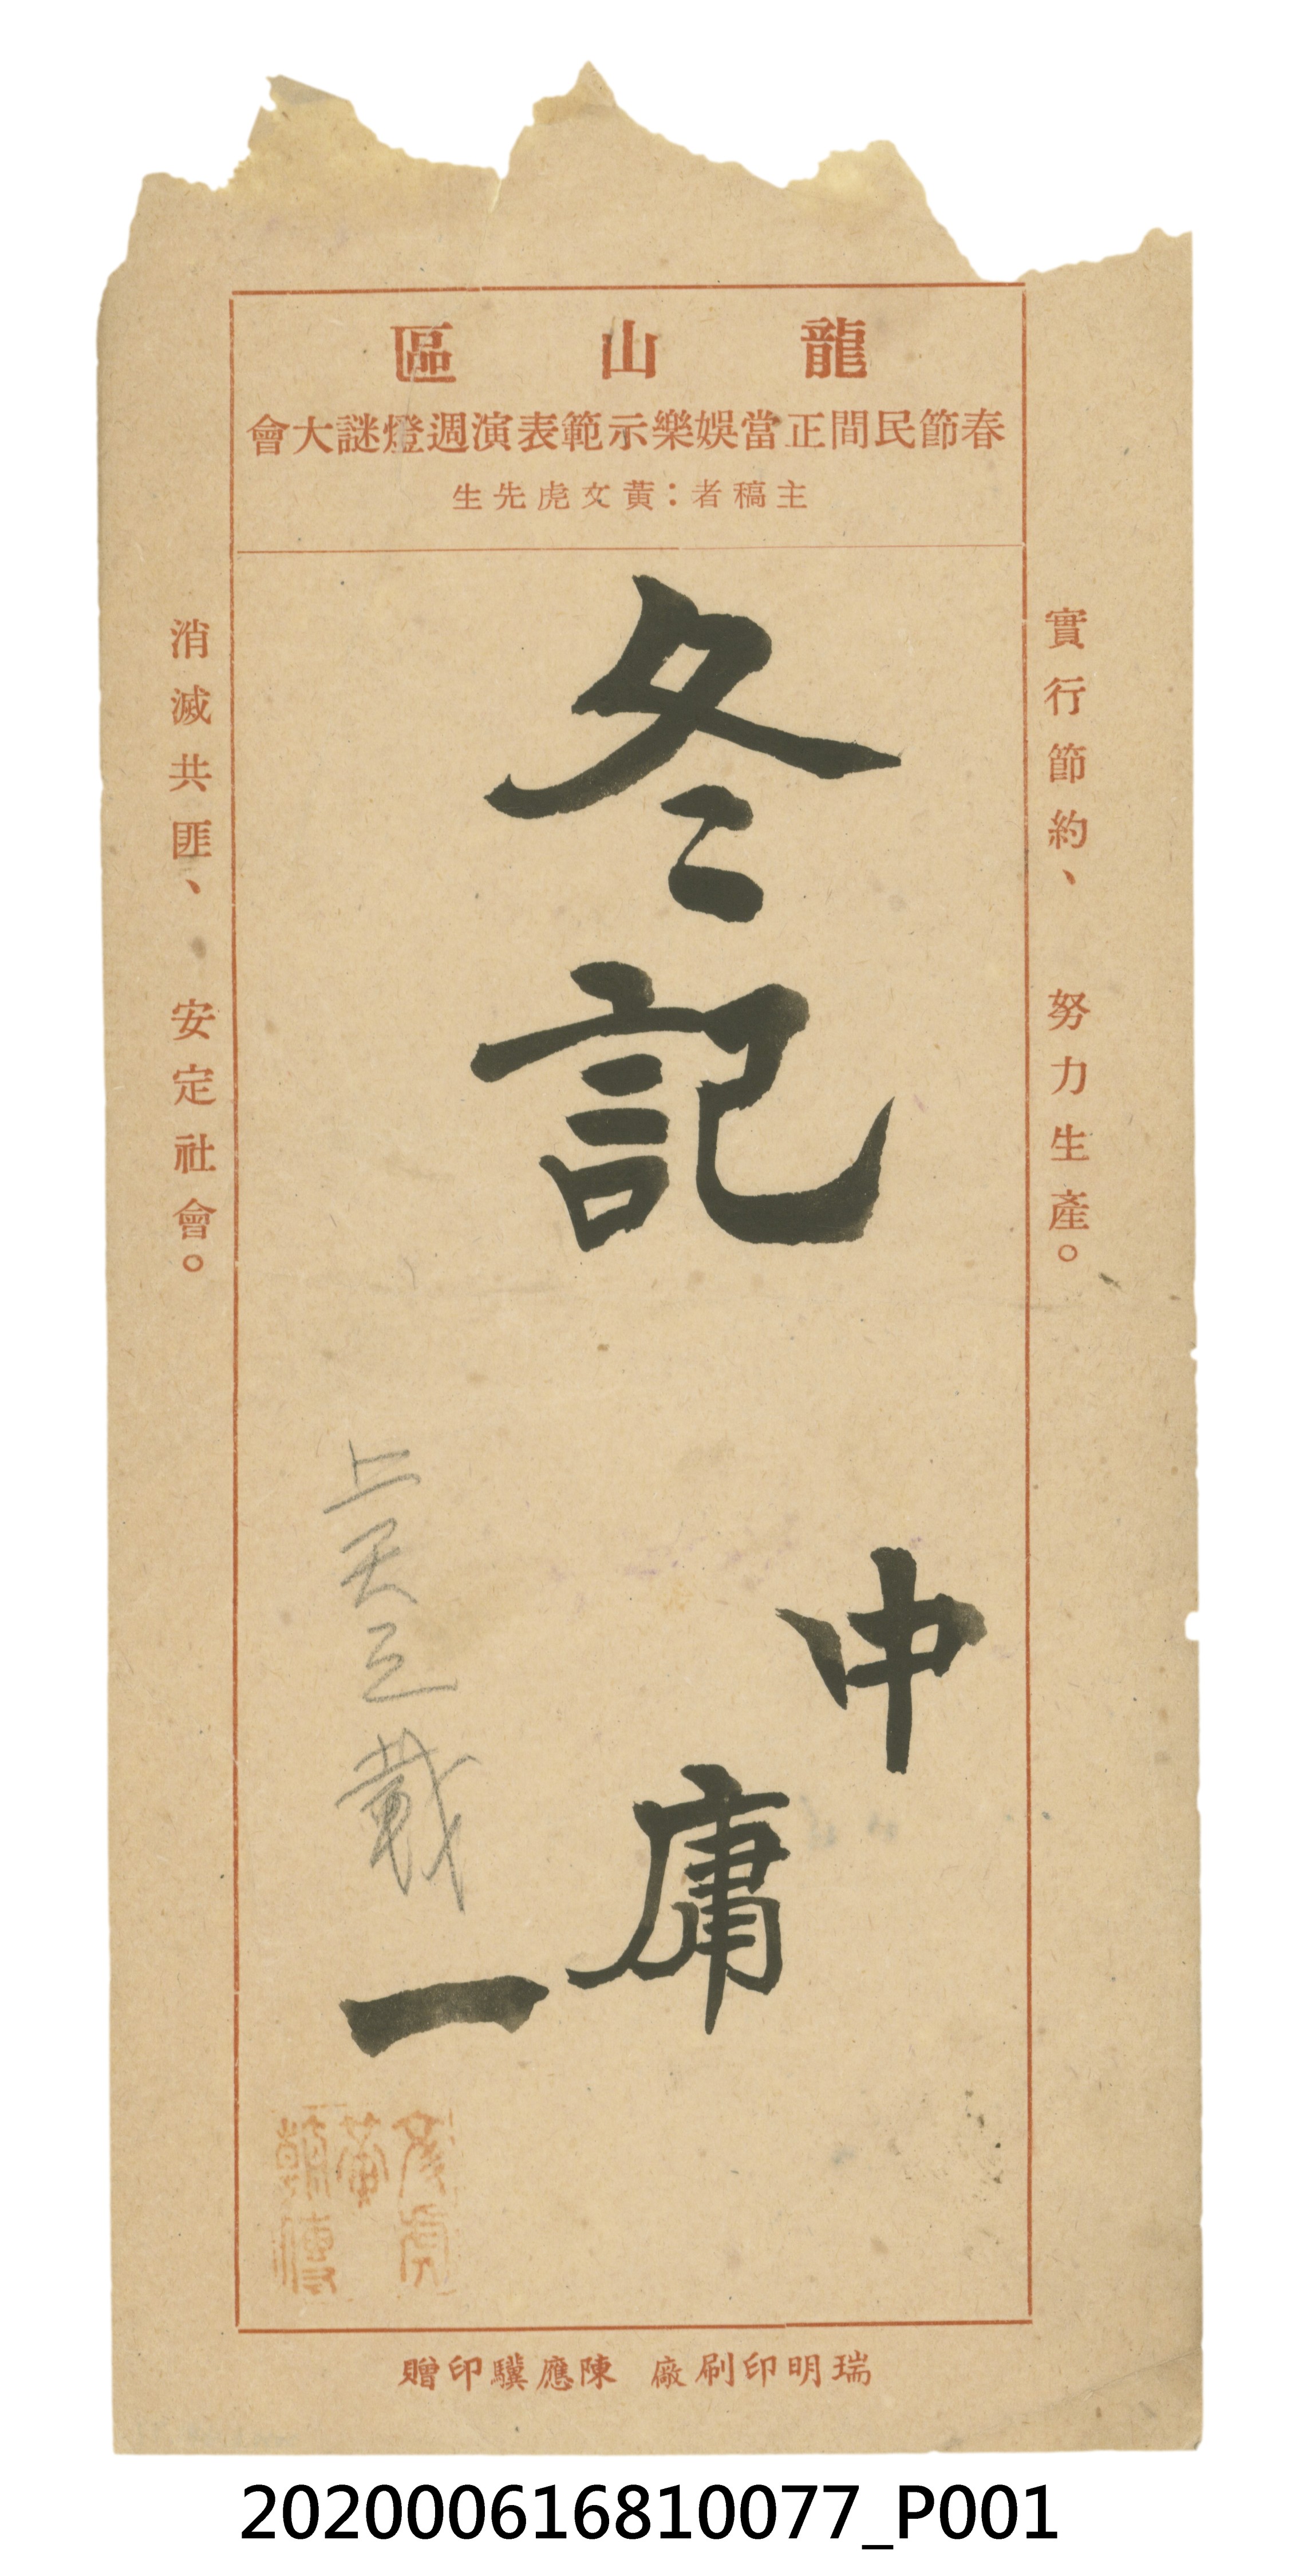 龍山區
春節民間正當娛樂示範表演週燈謎大會
主稿者：黃文虎先生
實行節約、努力生產。
冬記
中
庸
一
上天之載
消滅共匪、安定社會。
瑞明印刷廠 陳應驥印贈
202000616810077_P001